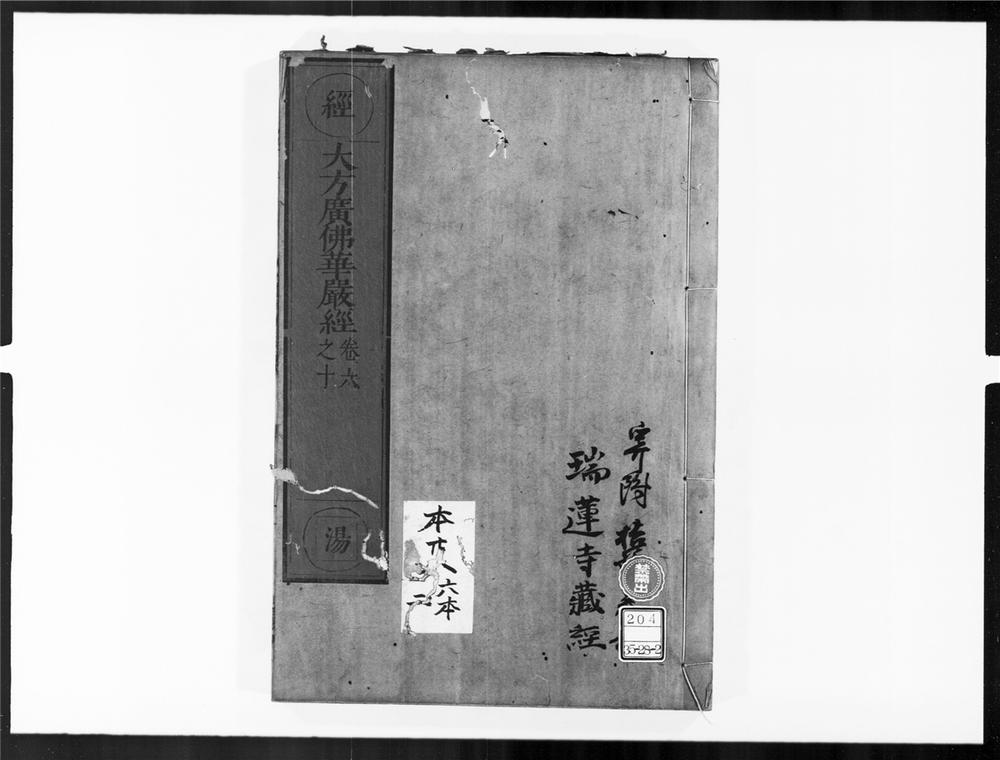 寄附
瑞蓮寺藏經
禁帶出
204
35-28-2
本
六本
二
經
大方廣佛華嚴經
卷六
之十
湯